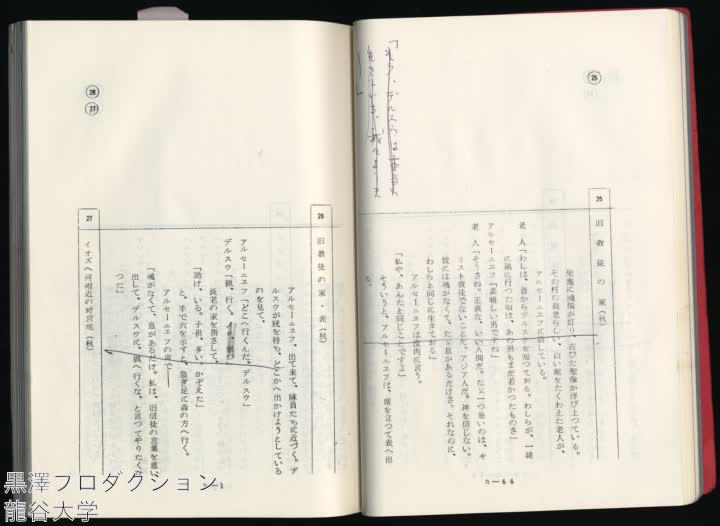 ㉕
25
旧教徒の家（秋）
聖龕に燈明が灯り、古びた聖像が浮び上つている。
その村の長老らしい、白い髭をたくわえた老人が、
アルセーニエフに話している。
老人「わしは、昔からデルスウを知つておる。わしらが、一緒
に猟に行つた頃は、あの男もまだ若かつたものさ」
アルセーニエフ「素晴しい男ですね」
老人「そうさね。正直な、いい人間だ。たゞ一つ悪いのは、キ
リスト教徒でないことだ。アジア人だ。神を信じない。
彼には魂がなくて、たゞ息があるだけさ。それなのに、
わしらと同じに生きておる」
アルセーニエフは皮肉に言う。
「私や、あんたと同じことですよ」
そういうと、アルセーニエフは、席を立つて表へ出
る。
n—66
㉖
㉗
26
旧教徒の家・表（秋）
アルセーニエフ、出て来て、隊員たちに近づく。デ
ルスウが銃を持ち、どこかへ出かけようとしている
のを見て、
アルセーニエフ「どこへ行くんだ、デルスウ」
デルスウ「猟、行く。
長老の家を指さして、
「助け、いる。子供、多い。かぞえた」
と、手で六を示すと、急ぎ足に森の方へ行く。
アルセーニエフの声で——
「魂がなくて、息があるだけ。私は、旧信徒の言葉を思い
出して、デルスウに、猟へ行くな、と言つてやりたくな
つた」
27
イオズヘ河附近の野営地（秋）
黒澤プロダクション
龍谷大学